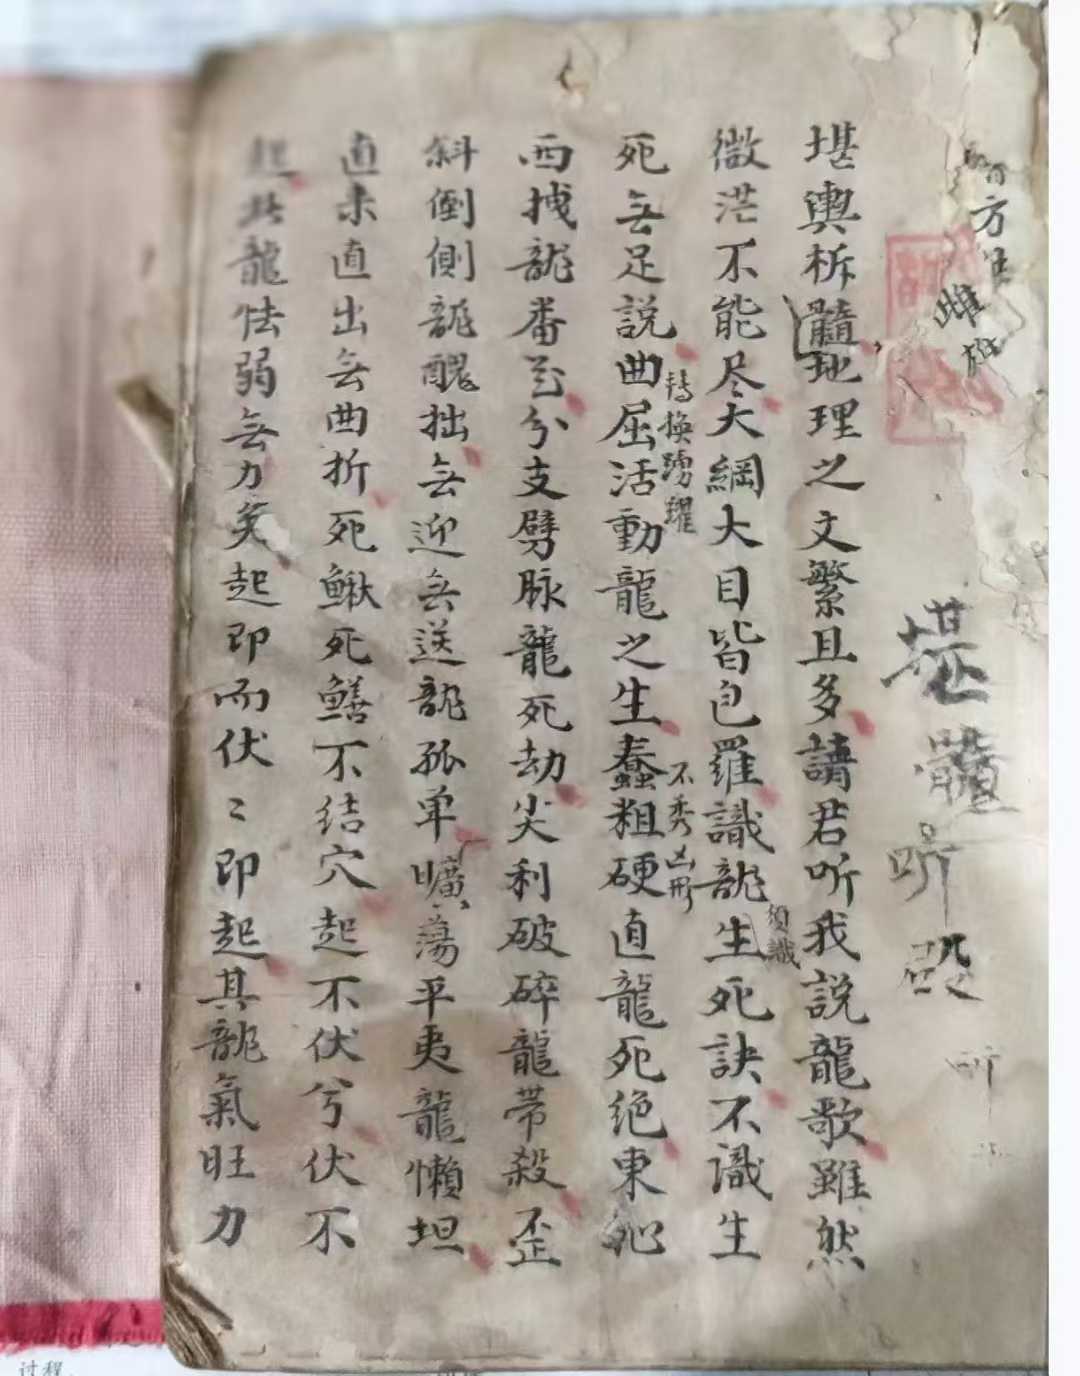 方
雌
堪
髓
堪輿析髓地理之文繁且多請君听我説龍歌雖然
微茫不能尽大綱大目皆包羅識龍生死訣不識生
須識
死無足説曲屈活動龍之生蠢粗硬直龍死绝東
轉換踴躍
不秀凶形
西拽龍番花分支劈脉龍死劫尖利破碎龍帶殺歪
斜倒側龍醜拙無迎無送龍孤单曠蕩平夷龍懒坦
直来直出無曲折死鰍死鱔不结穴起不伏兮伏不
起此龍怯弱無力矣起即而伏〻即起其龍氣旺力
过程